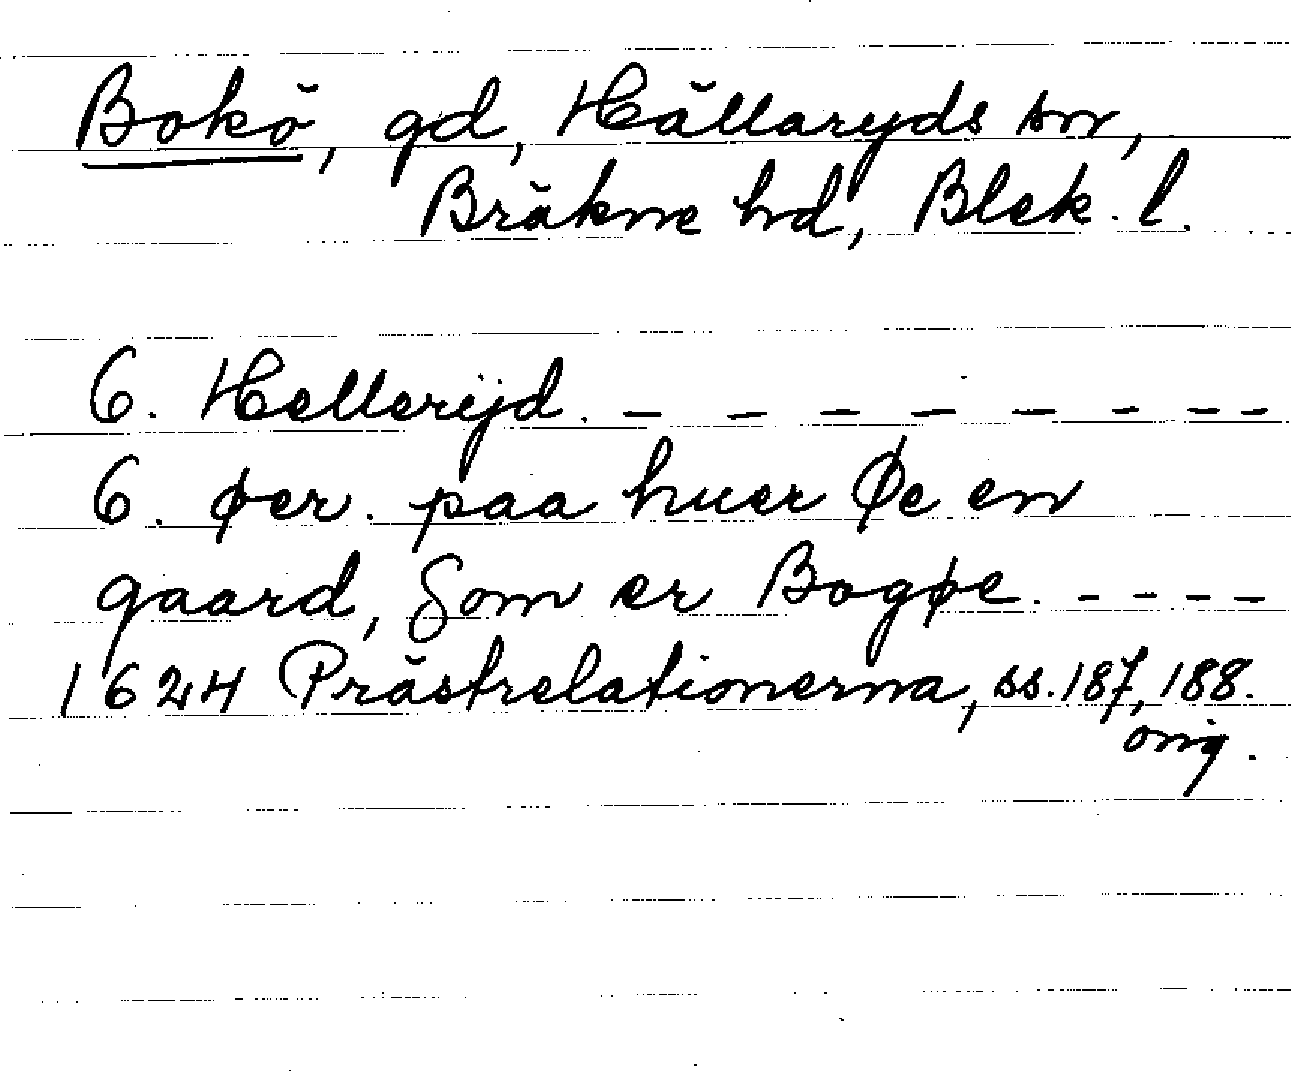 Bokö, gd, Hällaryds sn,
Bräkne hd, Blek. l.
6. Hellerijd. – – – – – – – –
6. øer. paa huer Øe en
gaard, Som er Bogøe. – – – –
1624 Prästrelationerna, ss. 187, 188.
orig.